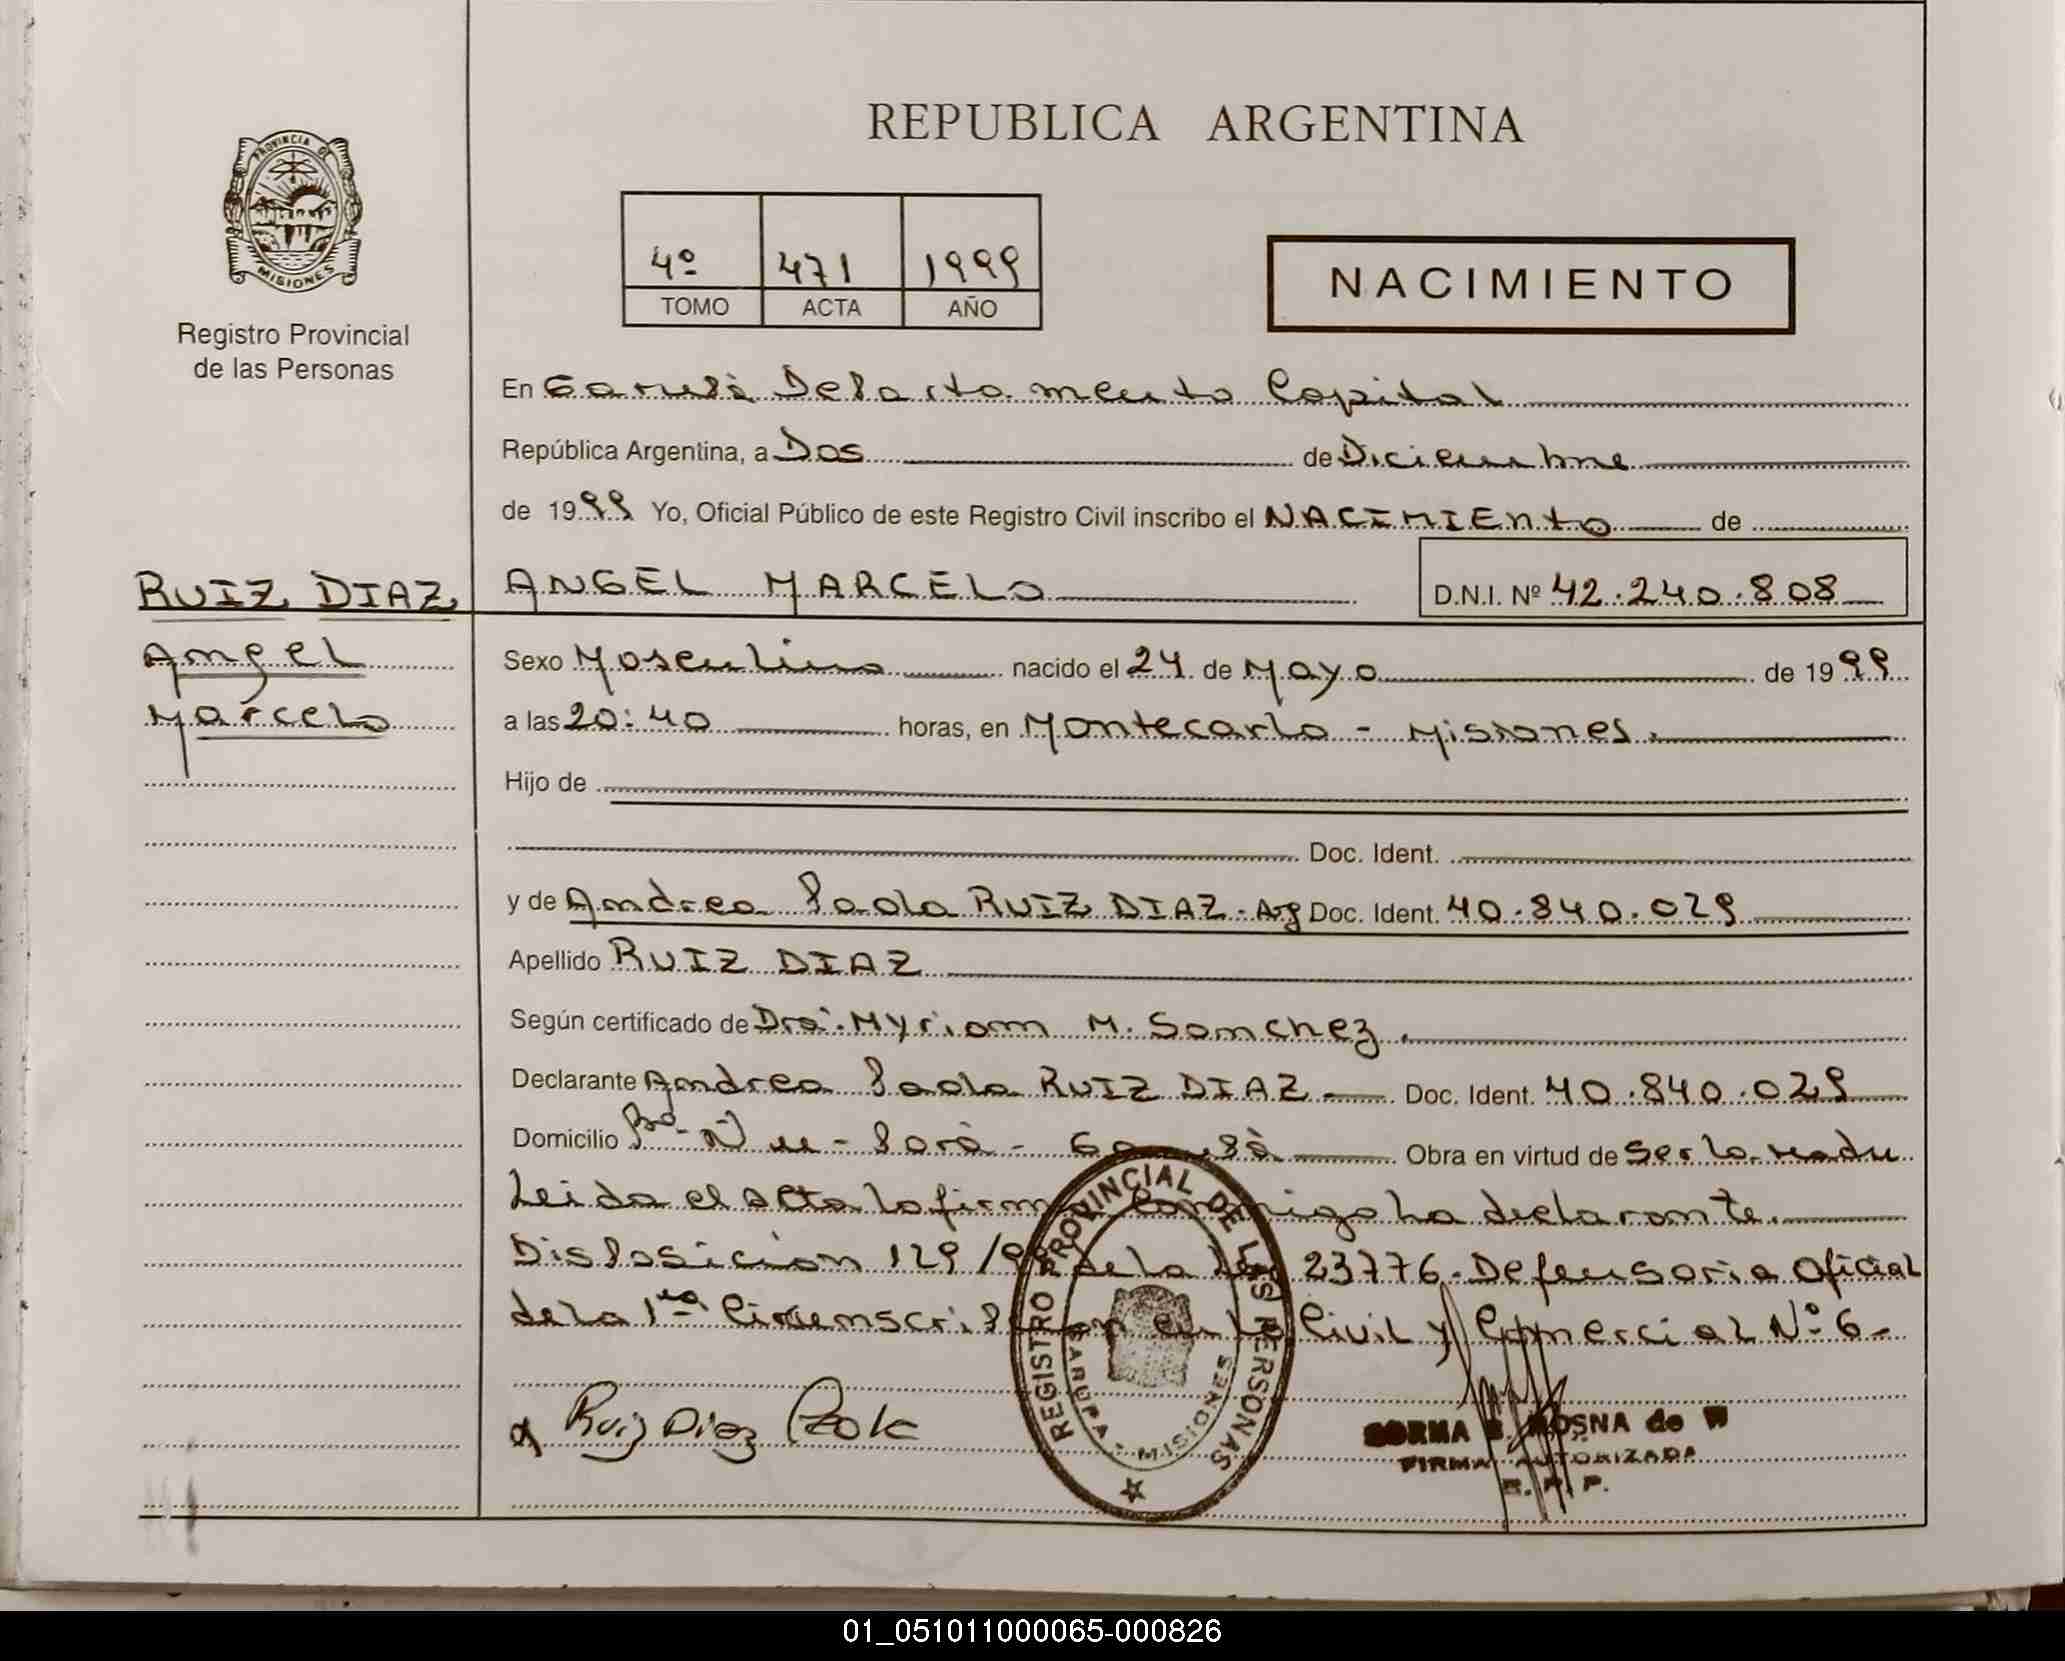 REPUBLICA ARGENTINA
PROVINCIA DE
MISIONES
Registro Provincial
de las Personas
4º 471 1999
TOMO ACTA AÑO
NACIMIENTO
En Garupá Departamento Capital
República Argentina, a Dos de Diciembre
de 1999 Yo, Oficial Público de este Registro Civil inscribo el NACIMIENto de
RUIZ DIAZ
Angel
Marcelo
ANGEL MARCELO D.N.I. Nº 42.240.808
Sexo Masculino nacido el 24 de Mayo de 1999
a las 20:40 horas, en Montecarlo - Misiones.
Hijo de
Doc. Ident.
y de Andrea Paola RUIZ DIAZ - Arg Doc. Ident. 40.840.029
Apellido RUIZ DIAZ
Según certificado de Dra. Myriam M. Sanchez.
Declarante Andrea Paola RUIZ DIAZ Doc. Ident. 40.840.029
Domicilio Bº - Ñu - Porá - Garupá Obra en virtud de ser la madre
Leida el acta la firma conmigo la declarante.
Disposicion 129/99 de la Ley 23776. Defensoria Oficial
de la 1ra Circunscripcion en lo Civil y Comercial Nº 6-
Ruiz Diaz Paola
REGISTRO PROVINCIAL DE LAS PERSONAS
GARUPA - MISIONES
NORMA ROSNA de W
FIRMA AUTORIZADA
R. P. P.
01_051011000065-000826